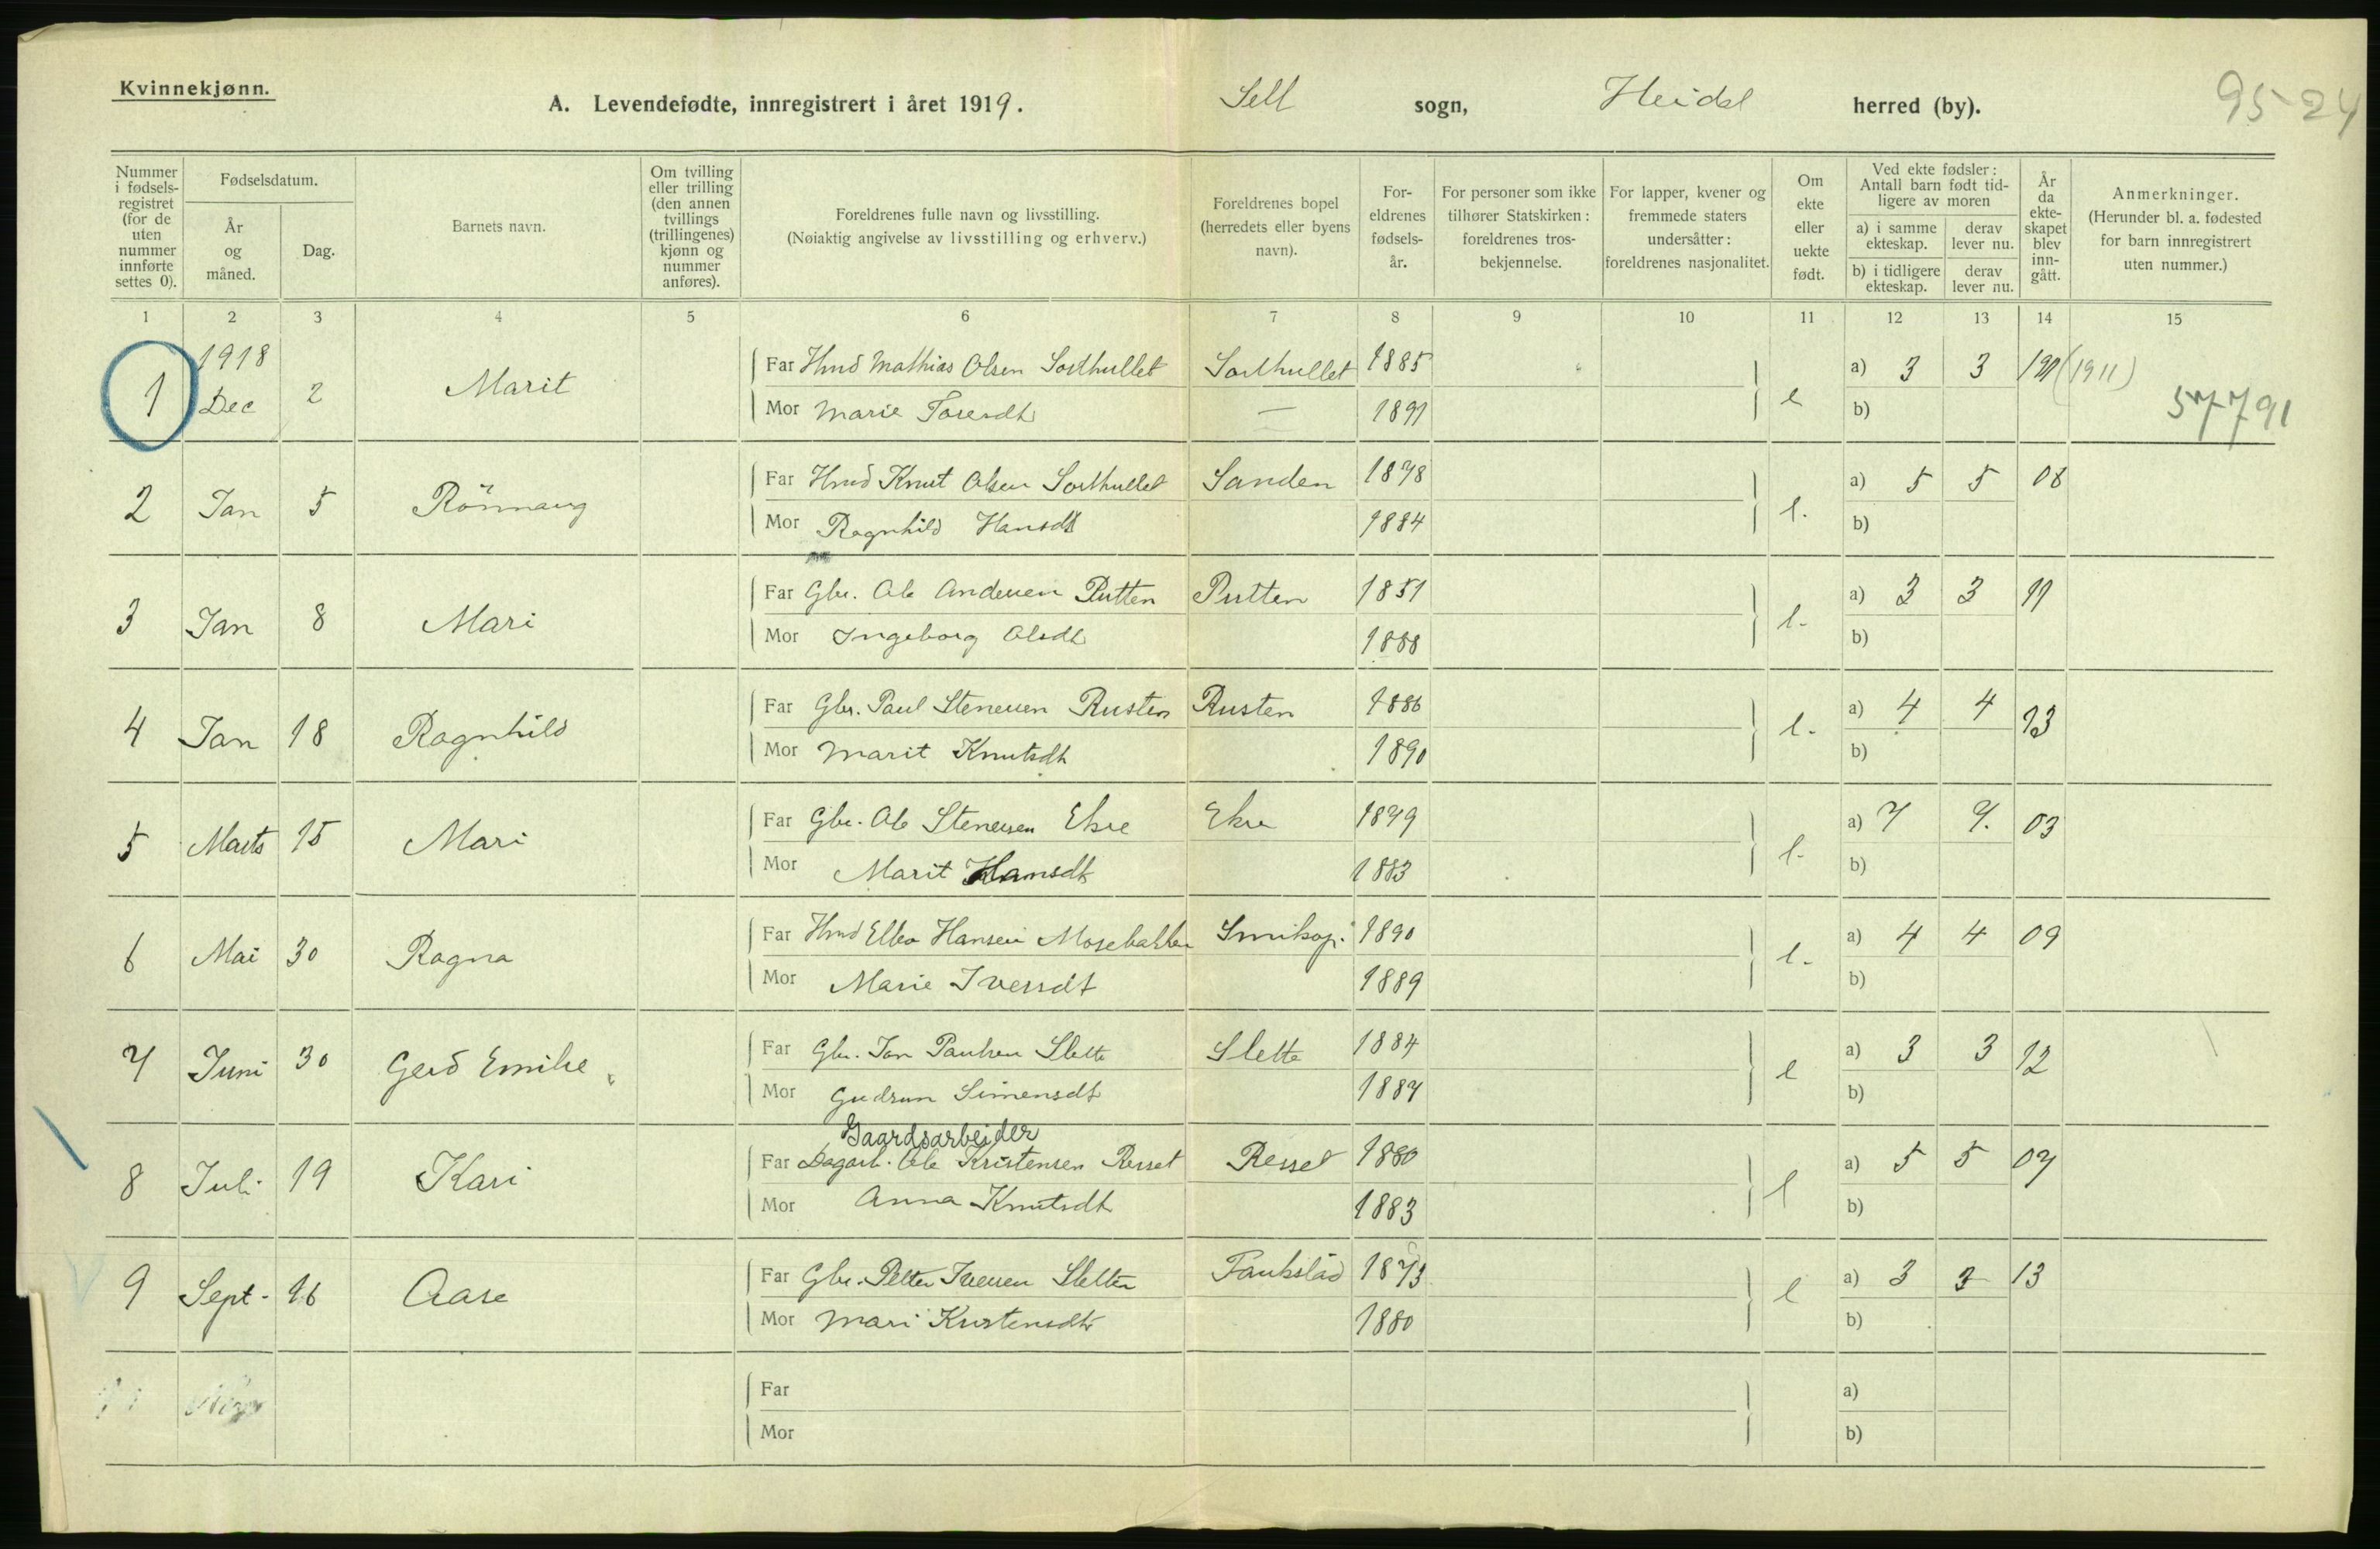 Kvinnekjønn.
A. Levendefødte, innregistrert i året 1919. Sell sogn, Heidal herred (by). 95-24
Nummer i fødselsregistret (for de uten nummer innførte settes 0).
Fødselsdatum.
År og måned.
Dag.
Barnets navn.
Om tvilling eller trilling (den annen tvillings (trillingenes) kjønn og nummer anføres).
Foreldrenes fulle navn og livsstilling.
(Nøiaktig angivelse av livsstilling og erhverv.)
Foreldrenes bopel (herredets eller byens navn).
Foreldrenes fødselsår.
For personer som ikke tilhører Statskirken: foreldrenes trosbekjennelse.
For lapper, kvener og fremmede staters undersåtter: foreldrenes nasjonalitet.
Om ekte eller uekte født.
Ved ekte fødsler: Antall barn født tidligere av moren
a) i samme ekteskap. derav lever nu.
b) i tidligere ekteskap. derav lever nu.
År da ekteskapet blev inngått.
Anmerkninger.
(Herunder bl. a. fødested for barn innregistrert uten nummer.)
1 2 3 4 5 6 7 8 9 10 11 12 13 14 15
1 1918 Dec 2 Marit
Far Hmd Mathias Olsen Sorthullet Sorthullet 1885 e a) 3 3 1911 (1911)
Mor Marie Toresdt — 1891 b) 57791
2 Jan 5 Rönnaug
Far Hmd Knut Olsen Sorthullet Sanden 1878 l. a) 5 5 08
Mor Ragnhild Hansdt 1884 b)
3 Jan 8 Mari
Far Gbr. Ole Andersen Putten Putten 1851 l- a) 3 3 11
Mor Ingeborg Olsdt 1888 b)
4 Jan 18 Ragnhild
Far Gbr. Paul Stenersen Rusten Rusten 1886 l- a) 4 4 13
Mor Marit Knutsdt 1890 b)
5 Marts 15 Mari
Far Gbr. Ole Stenersen Ekre Ekre 1879 l- a) 7 7. 03
Mor Marit Hansdt 1883 b)
6 Mai 30 Ragna
Far Hmd Hansen Mosebakken 1890 l- a) 4 4 09
Mor Marie Iversdt 1889 b)
7 Juni 30 Gerd Emilie
Far Gbr. Jan Paulsen Slette Slette 1884 e a) 3 3 12
Mor Gudrun Simensdt 1887 b)
Gaardsarbeider
8 Juli 19 Kari
Far Dagarb. Ole Kristensen Resset Resset 1880 l a) 5 5 07
Mor Anna Knutsdt 1883 b)
9 Sept. 16 Aase
Far Gbr. Petter Iversen Sletten 1873 e a) 3 3 13
Mor Mari Kristensdt 1880 b)
Far a)
Mor b)